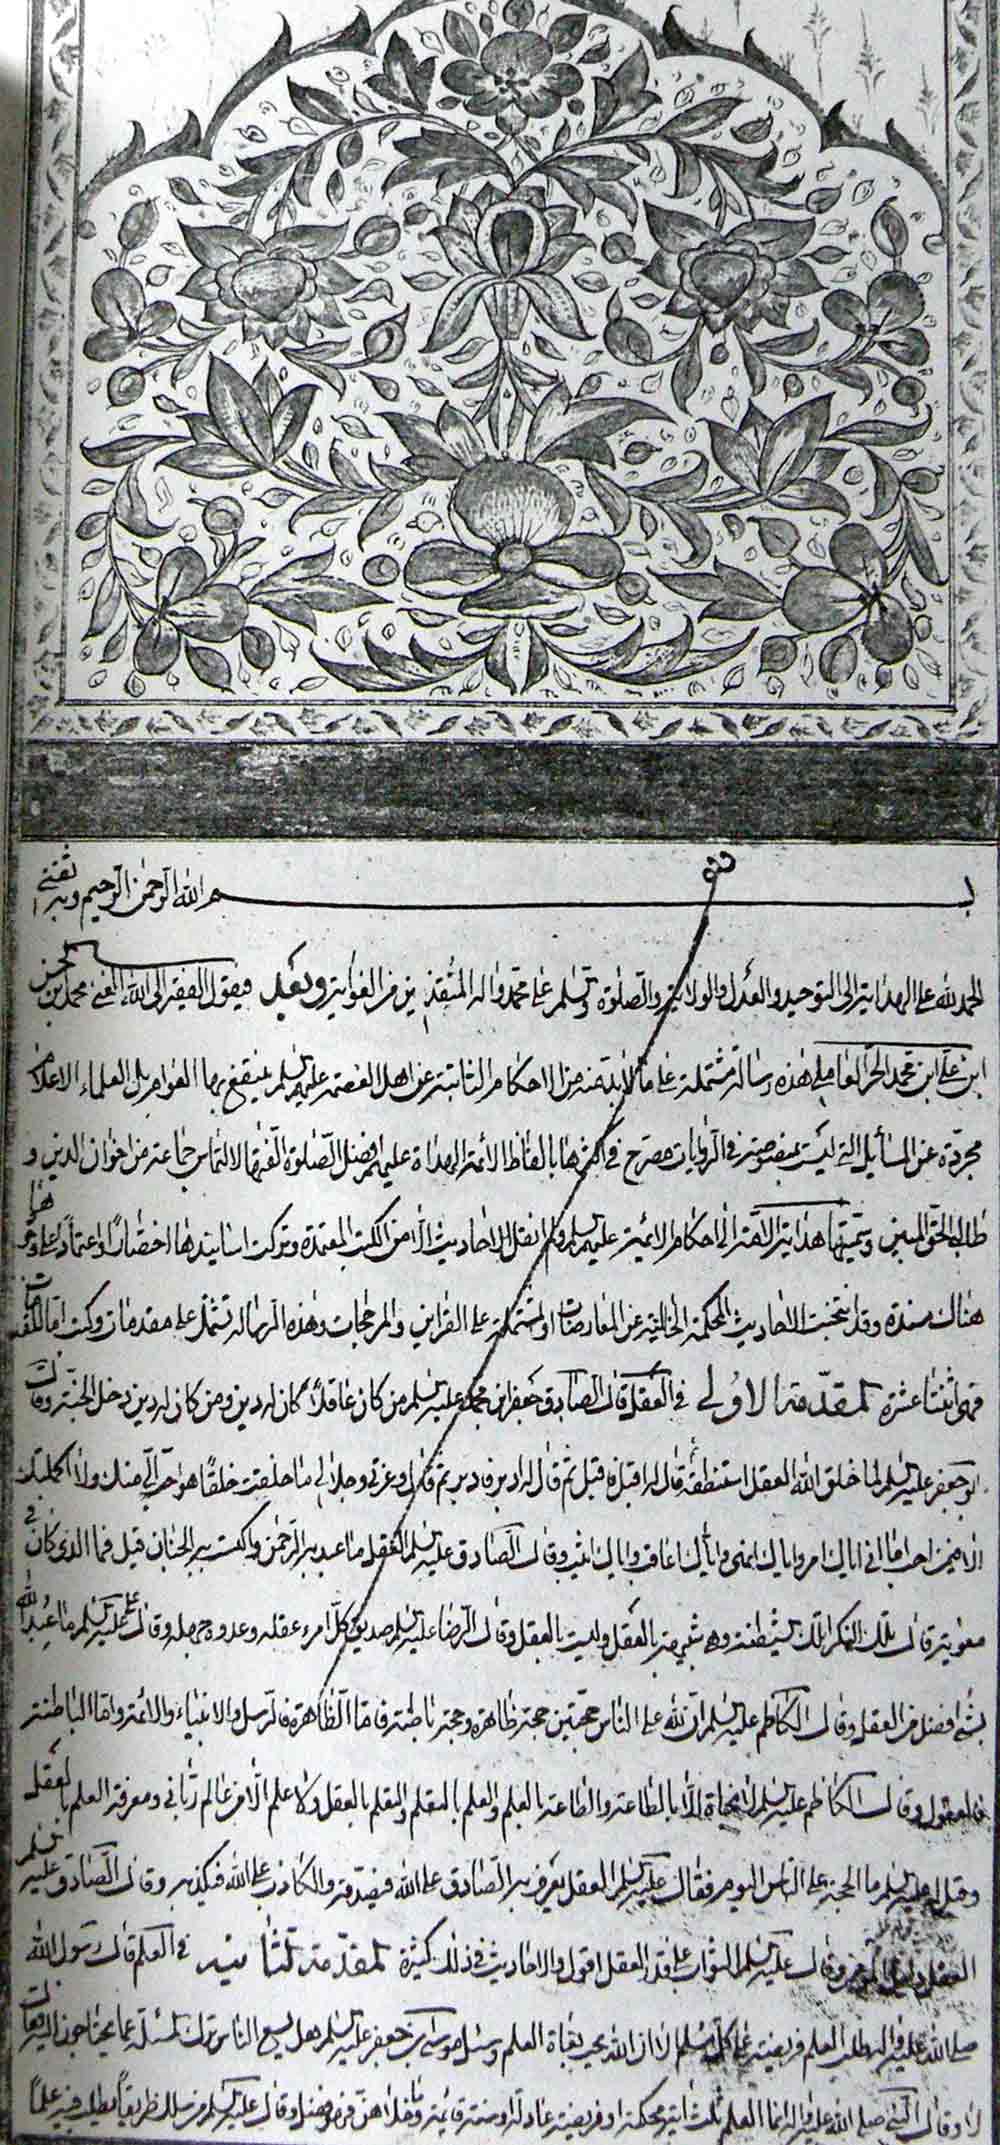 بسم الله الرحمن الرحيم وبه ثقتي
الحمد لله على الهداية الى التوحيد والعدل والولاية والصلوة وتسلم على محمد واله المنقذين من الغواية وبعد فيقول الفقير الى الله الغني محمد ابن الحسن
ابن علي ابن محمد الحر العاملي هذه رسالة مشتملة على ما لابد منه من الاحكام الثابتة عن اهل العصمة عليهم السلم ينتفع بها العوام بل العلماء الاعلام
مجردة عن المسايل التي ليست بمنصوصة في الروايات مصرح في اكثرها بالفاظ الائمة الهداة عليهم افضل الصلوة الفتها لالتماس جماعة من اخوان الدين و
طالبي الحق المبين وسميتها هداية الامة الى احكام الائمة عليهم السلم ولم انقل الاحاديث الا من الكتب المعتمدة وتركت اسانيدها اختصارا واعتمادا على وجودها
هناك مسندة وقد انتخبت الاحاديث المحكمة الخالية عن المعارضات او المشتملة على القراين والمرجحات وهذه الرسالة تشتمل على مقدمات وكتب اما المقدمات
فهي اثنتا عشرة المقدمة الاولى في العقل قال الصادق جعفر ابن محمد عليه السلم من كان عاقلا كان له دين ومن كان له دين دخل الجنة وقال
ابو جعفر عليه السلم لما خلق الله العقل استنطقه قال له اقبل فاقبل ثم قال له ادبر فادبر ثم قال وعزتي وجلالي ما خلقت خلقا هو احب الي منك ولا اكملتك
الا فيمن احب اما اني اياك امر واياك انهى واياك اعاقب واياك اثيب وقال الصادق عليه السلم العقل ما عبد به الرحمن واكتسب به الجنان قيل فما الذي كان في
معوية قال تلك النكراء تلك الشيطنة وهي شبيهة بالعقل وليست بالعقل وقال الرضا عليه السلم صديق كل امرء عقله وعدوه جهله وقال علي عليه السلم ما عبد الله
بشيء افضل من العقل وقال الكاظم عليه السلم ان لله على الناس حجتين حجة ظاهرة وحجة باطنة فاما الظاهرة فالرسل والانبياء والائمة واما الباطنة
فالعقول وقال الكاظم عليه السلم لا نجاة الا بالطاعة والطاعة بالعلم والعلم بالتعلم والتعلم بالعقل ولا علم الا من عالم رباني ومعرفة العلم بالعقل
وقيل له عليه السلم ما الحجة على الناس اليوم فقال عليه السلم العقل يعرف به الصادق على الله فيصدقه والكاذب على الله فيكذبه وقال الصادق عليه السلم
العقل دليل المؤمن وقال عليه السلم الثواب على قدر العقل اقول والاحاديث في ذلك كثيرة المقدمة الثانية في العلم قال رسول الله
صلى الله عليه واله طلب العلم فريضة على كل مسلم الا ان الله يحب بغاة العلم وسئل موسى بن جعفر عليه السلم هل يسع الناس ترك المسئلة عما يحتاجون اليه فقال
لا وقال النبي صلى الله عليه واله انما العلم ثلث اية محكمة او فريضة عادلة او سنة قائمة وما خلاهن فهو فضل وقال عليه السلم من سلك طريقا يطلب فيه علما